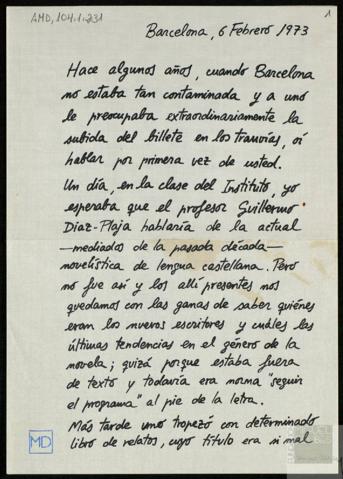 AMD, 104.1.231
1
Barcelona, 6 Febrero 1973
Hace algunos años, cuando Barcelona
no estaba tan contaminada y a uno
le preocupaba extraordinariamente la
subida del billete en los tranvías, oí
hablar por primera vez de usted.
Un día, en la clase del Instituto, yo
esperaba que el profesor Guillermo
Díaz-Plaja hablaría de la actual
—mediados de la pasada década—
novelística de lengua castellana. Pero
no fue así y los allí presentes nos
quedamos con las ganas de saber quiénes
eran los nuevos escritores y cuáles las
últimas tendencias en el género de la
novela; quizá porque estaba fuera
de texto y todavía era norma "seguir
el programa" al pie de la letra.
Más tarde uno tropezó con determinado
libro de relatos, cuyo título era si mal
MD